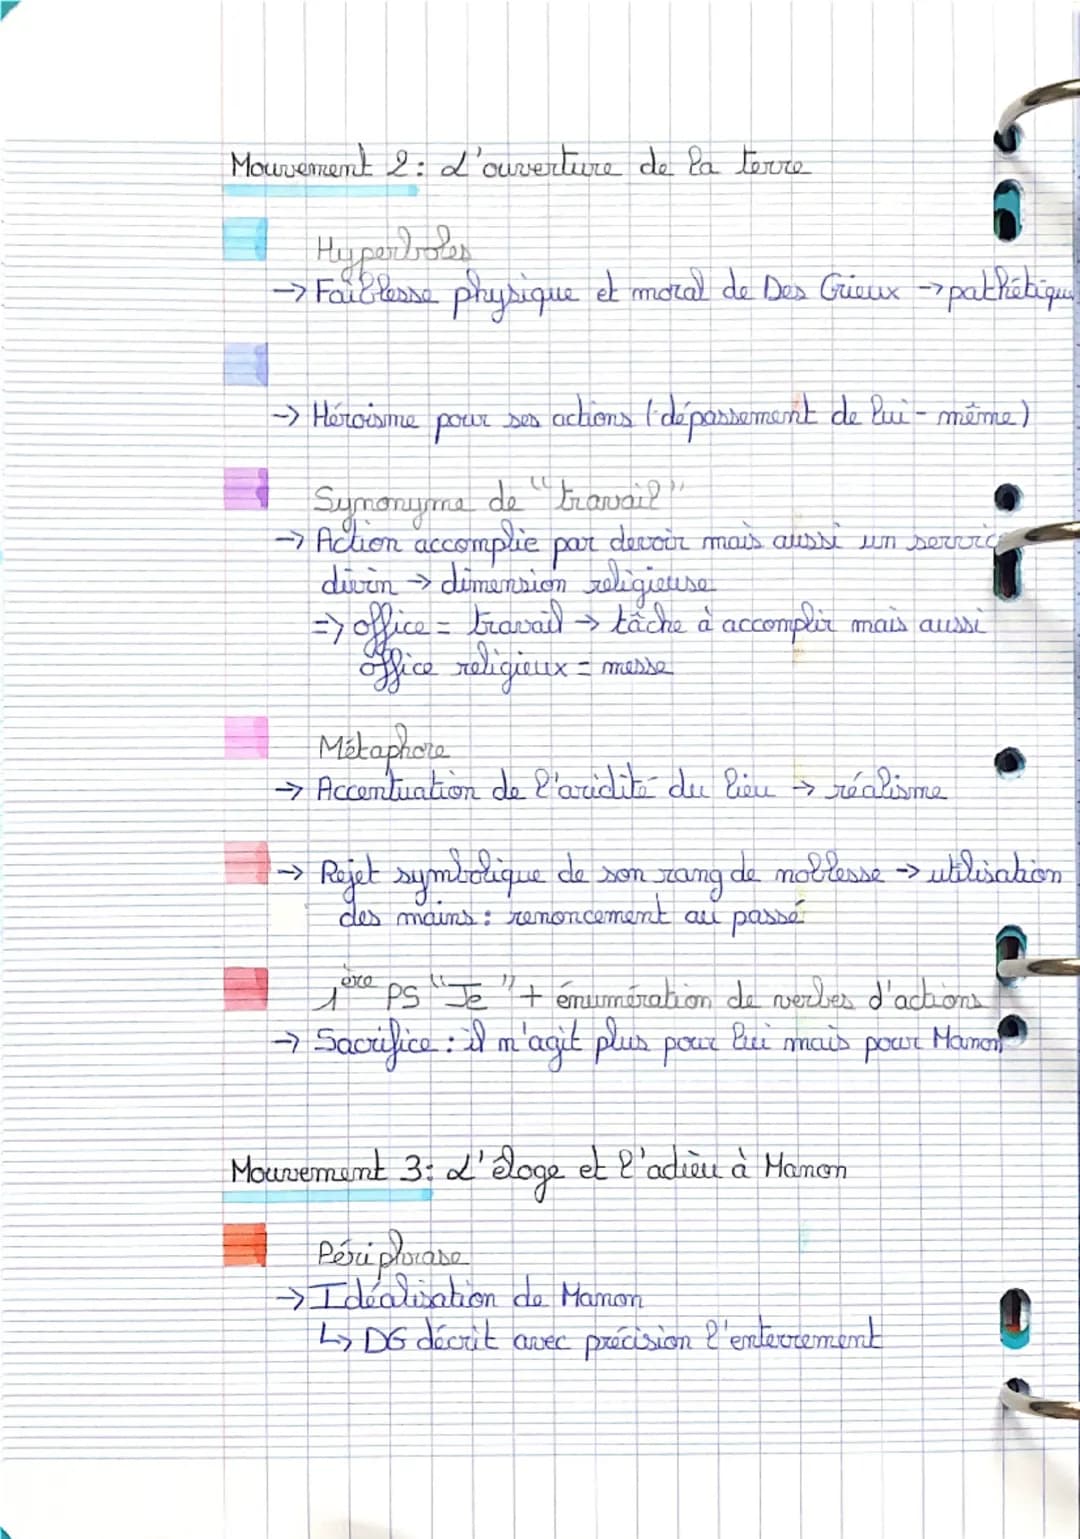 Mouvement 2: L'ouverture de la terre
Hyperboles
→ Faiblesse physique et moral de Des Grieux → pathétique
→ Héroïsme pour ses actions (dépassement de lui-même)
Synonyme de "travail"
→ Action accomplie par devoir mais aussi un servic
divin → dimension religieuse
=> office = travail → tâche à accomplir mais aussi
office religieux = messe
Métaphore
→ Accentuation de l'aridité du lieu → réalisme
→ Rejet symbolique de son rang de noblesse → utilisation
des mains : renoncement au passé
1ère PS "Je" + énumération de verbes d'actions
→ Sacrifice : il n'agit plus pour lui mais pour Manon
Mouvement 3: L'éloge et l'adieu à Manon
Périphrase
→ Idéalisation de Manon
↳ DG décrit avec précision l'enterrement